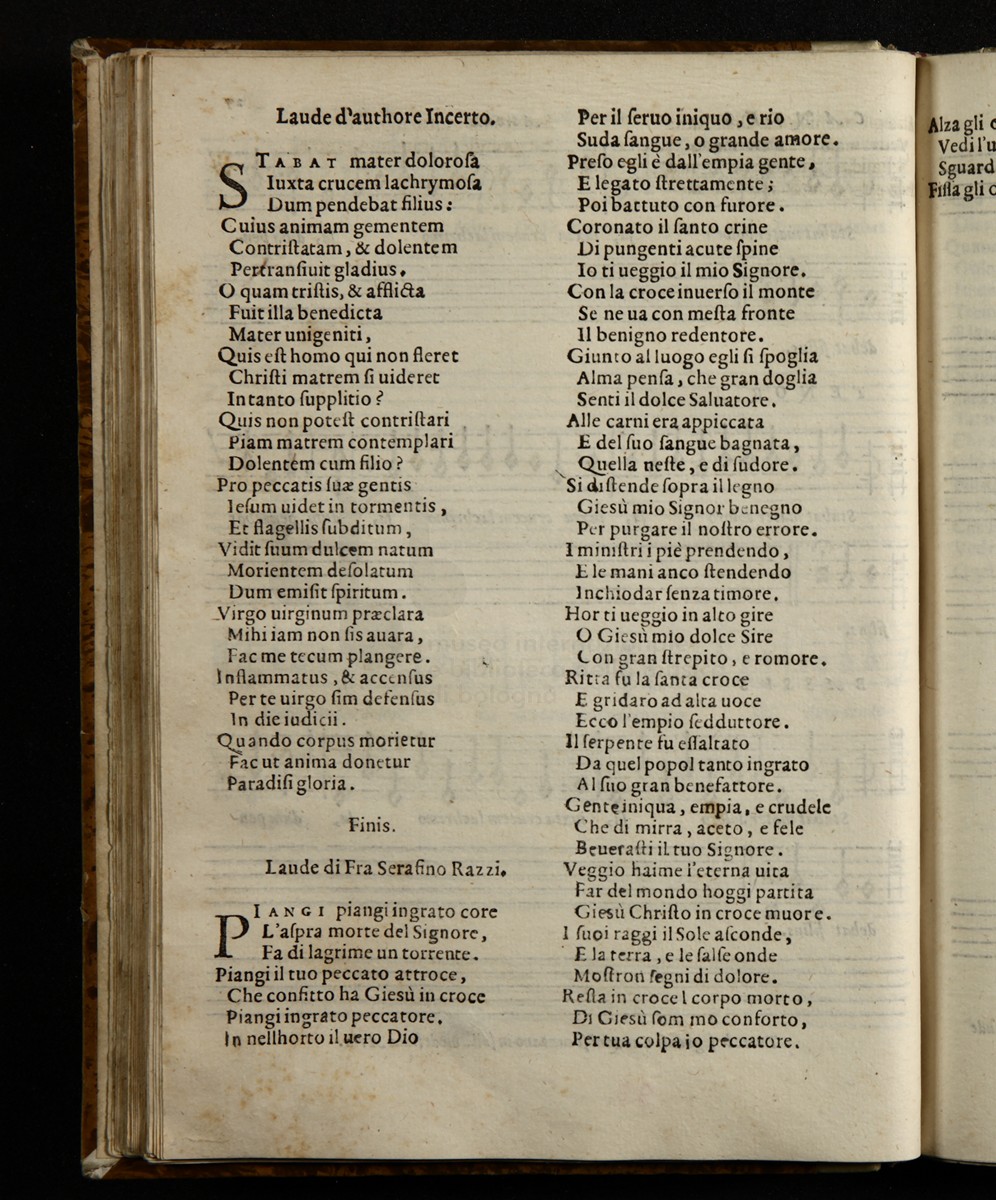 Laude d'authore Incerto.
STABAT mater doloroſa
Iuxta crucem lachrymoſa
Dum pendebat filius:
Cuius animam gementem
Contriſtatam, & dolentem
Pertranſiuit gladius.
O quam triſtis, & afflicta
Fuit illa benedicta
Mater unigeniti,
Quis eſt homo qui non fleret
Chriſti matrem ſi uideret
In tanto ſupplitio?
Quis non poteſt contriſtari
Piam matrem contemplari
Dolentem cum filio?
Pro peccatis ſuæ gentis
Ieſum uidet in tormentis,
Et flagellis ſubditum,
Vidit ſuum dulcem natum
Morientem deſolatum
Dum emiſit ſpiritum.
Virgo uirginum præclara
Mihi iam non ſis auara,
Fac me tecum plangere.
Inflammatus, & accenſus
Per te uirgo ſim defenſus
In die iudicii.
Quando corpus morietur
Fac ut anima donetur
Paradiſi gloria.
Finis.
Laude di Fra Serafino Razzi.
PIANGI piangi ingrato core
L'aſpra morte del Signore,
Fa di lagrime un torrente.
Piangi il tuo peccato attroce,
Che confitto ha Giesù in croce
Piangi ingrato peccatore.
In nellhorto il uero Dio
Per il ſeruo iniquo, e rio
Suda ſangue, o grande amore.
Preſo egli è dall'empia gente,
E legato ſtrettamente;
Poi battuto con furore.
Coronato il ſanto crine
Di pungenti acute ſpine
Io ti ueggio il mio Signore.
Con la croce inuerſo il monte
Se ne ua con meſta fronte
Il benigno redentore.
Giunto al luogo egli ſi ſpoglia
Alma penſa, che gran doglia
Senti il dolce Saluatore.
Alle carni era appiccata
E del ſuo ſangue bagnata,
Quella neſte, e di ſudore.
Si diſtende ſopra il legno
Giesù mio Signor benegno
Per purgare il noſtro errore.
I miniſtri i piè prendendo,
E le mani anco ſtendendo
Inchiodar ſenza timore.
Hor ti ueggio in alto gire
O Giesù mio dolce Sire
Con gran ſtrepito, e romore.
Ritta fu la ſanta croce
E gridaro ad alta uoce
Ecco l'empio ſedduttore.
Il ſerpente fu eſſaltato
Da quel popol tanto ingrato
Al ſuo gran benefattore.
Gente iniqua, empia, e crudele
Che di mirra, aceto, e fele
Beueraſti il tuo Signore.
Veggio haime l'eterna uita
Far del mondo hoggi partita
Giesù Chriſto in croce muore.
I ſuoi raggi il Sole aſconde,
E la terra, e le ſalſe onde
Moſtron ſegni di dolore.
Reſta in croce l corpo morto,
Di Giesù ſom mo conforto,
Per tua colpa io peccatore.
Alza gli
Vedi l'u
Sguard
Fiſſa gli